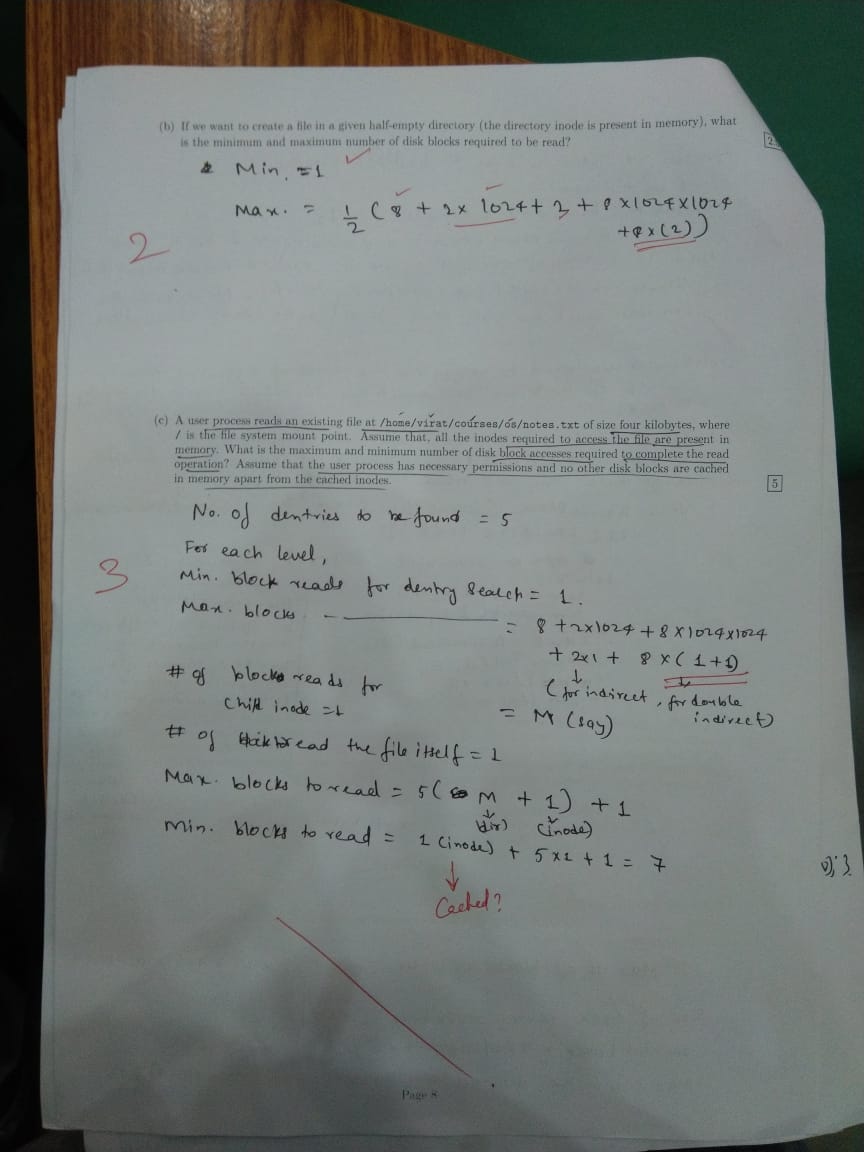 (b) If we want to create a file in a given half-empty directory (the directory inode is present in memory), what
is the minimum and maximum number of disk blocks required to be read?
Min. = 1
Max. = 1/2 ( 8 + 2 x 1024 + 2 + 8 x 1024 x 1024
+ 8 x (2) )
2
(c) A user process reads an existing file at /home/virat/courses/os/notes.txt of size four kilobytes, where
/ is the file system mount point. Assume that, all the inodes required to access the file are present in
memory. What is the maximum and minimum number of disk block accesses required to complete the read
operation? Assume that the user process has necessary permissions and no other disk blocks are cached
in memory apart from the cached inodes.
5
No. of dentries to be found = 5
For each level,
3
Min. block reads for dentry search = 1.
Max. blocks = 8 + 2x1024 + 8 x 1024 x 1024
+ 2x1 + 8 x ( 1 + 1 )
( for indirect , for double
indirect )
# of blocks reads for
child inode = 1
= M (say)
# of read the file itself = 1
Max. blocks to read = 5 ( M + 1 ) + 1
(dir) (inode)
Min. blocks to read = 1 (inode) + 5 x 1 + 1 = 7
Cached?
Page 8